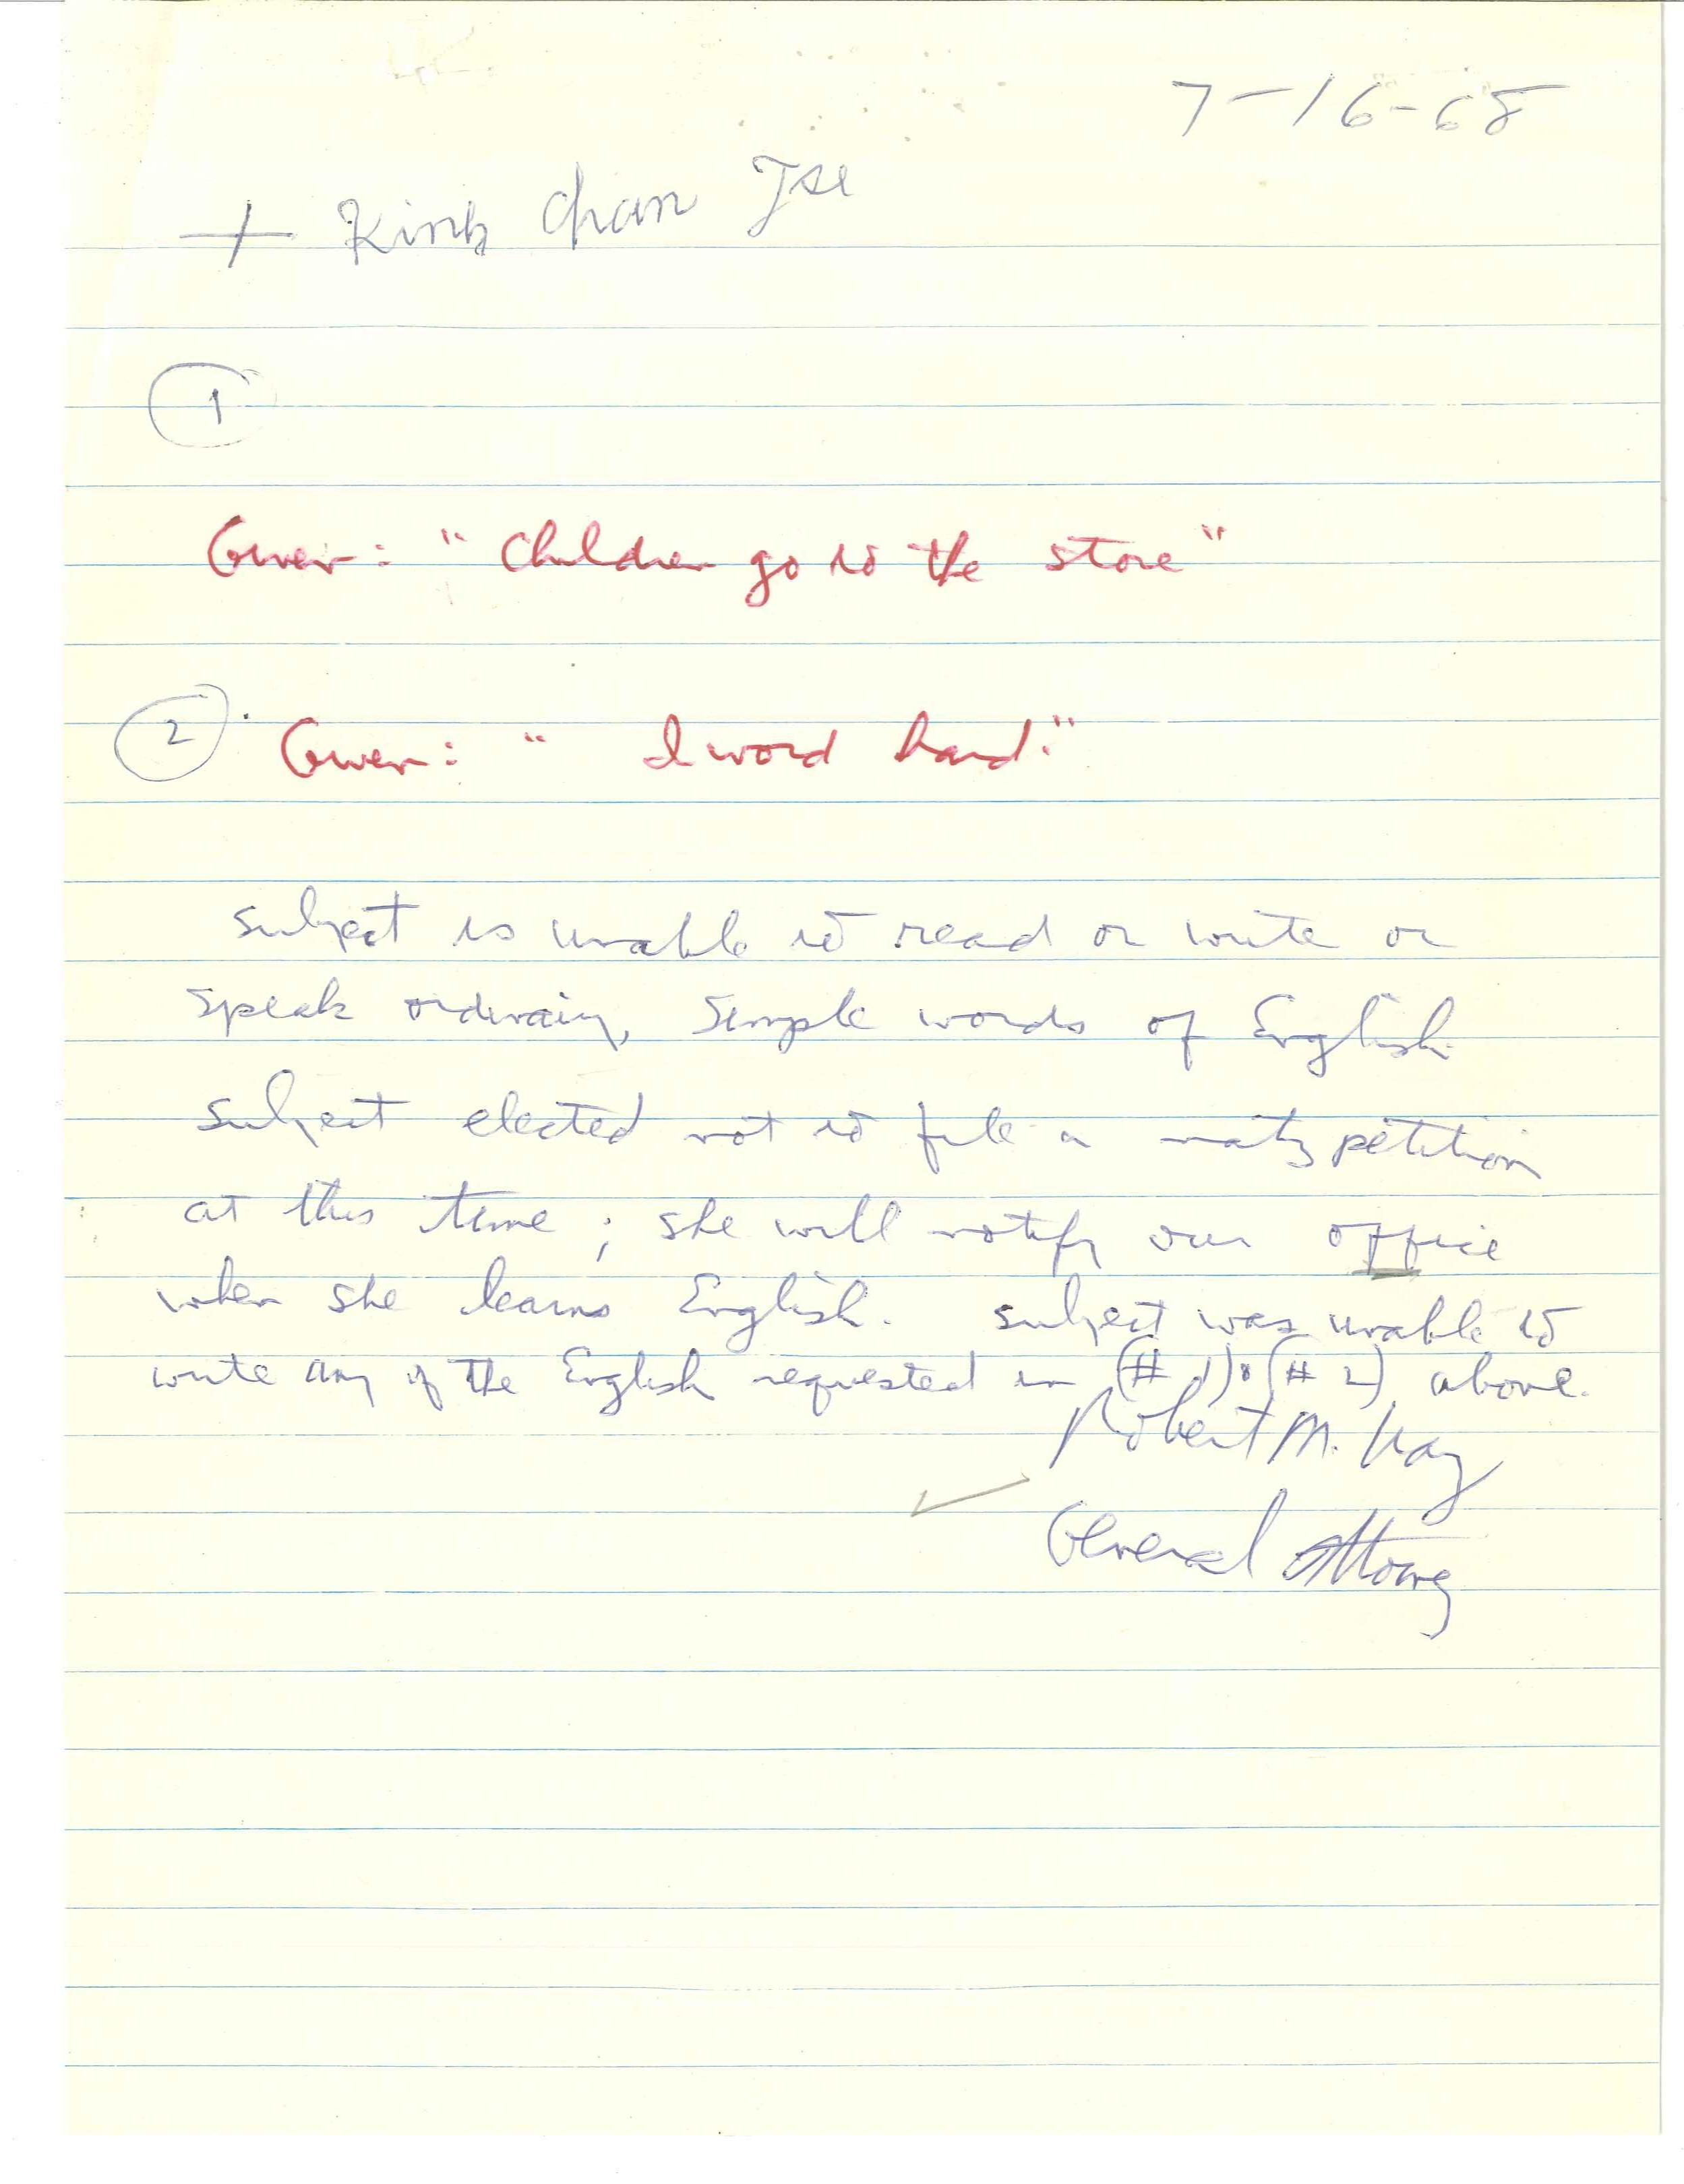 7-16-68
+ King Chan Tse
1
Given: " Children go to the store "
2 Given: " I word hard."
Subject is unable to read or write or
speak ordinary, simple words of English
Subject elected not to file a natz petition
at this time ; she will notify our office
when she learns English. Subject was unable to
write any of the English requested in (# 1) & (# 2) above.
Robert M.
General Attorney